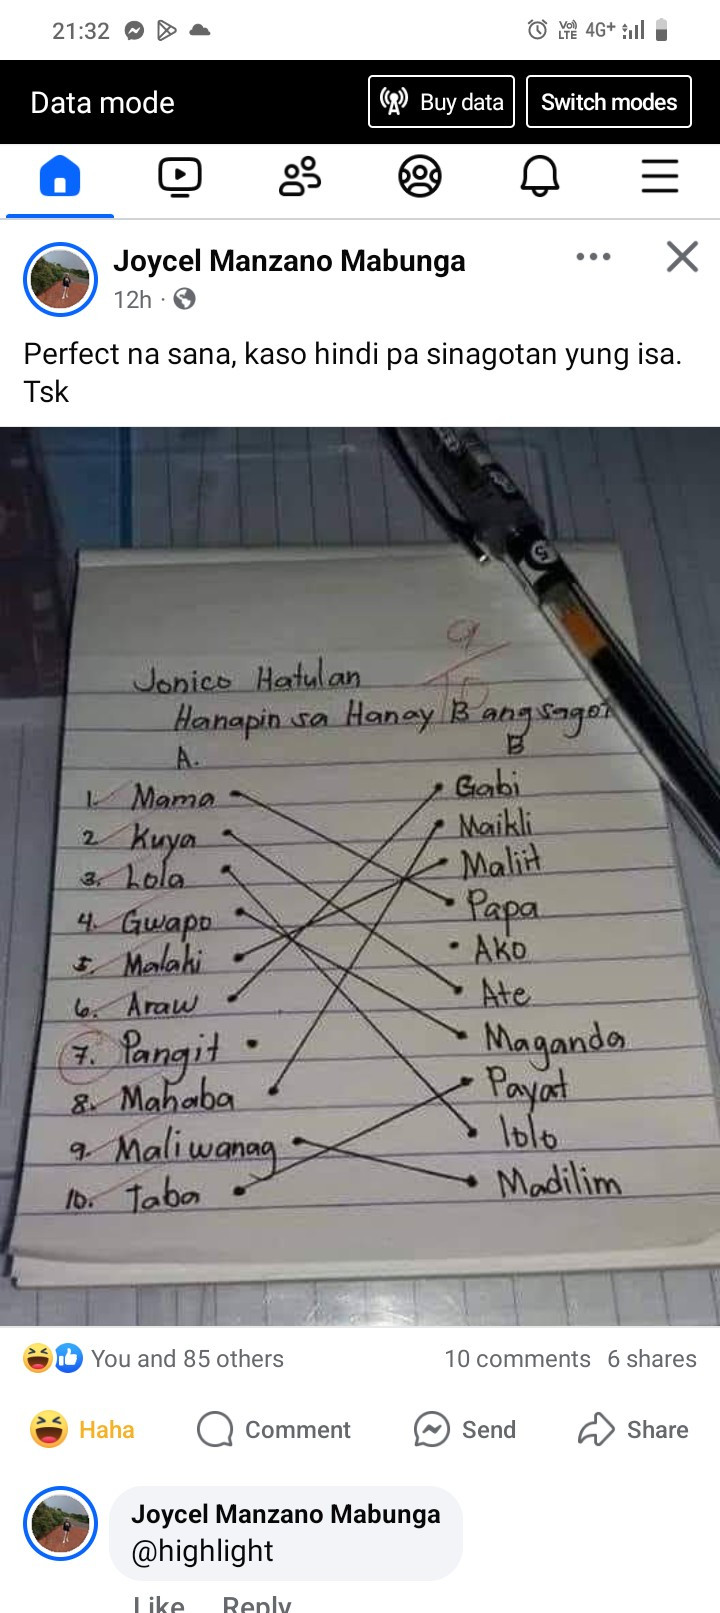 21:32
Vo) LTE 4G+
Data mode
Buy data
Switch modes
Joycel Manzano Mabunga
12h ·
Perfect na sana, kaso hindi pa sinagotan yung isa.
Tsk
5
9
10
Jonico Hatulan
Hanapin sa Hanay B ang sagot
A. B
1. Mama Gabi
2 Kuya Maikli
3. Lola Maliit
4. Gwapo Papa
5. Malaki AKO
6. Araw Ate
7. Pangit Maganda
8. Mahaba Payat
9. Maliwanag lolo
10. Taba Madilim
You and 85 others
10 comments 6 shares
Haha
Comment
Send
Share
Joycel Manzano Mabunga
@highlight
Like Reply